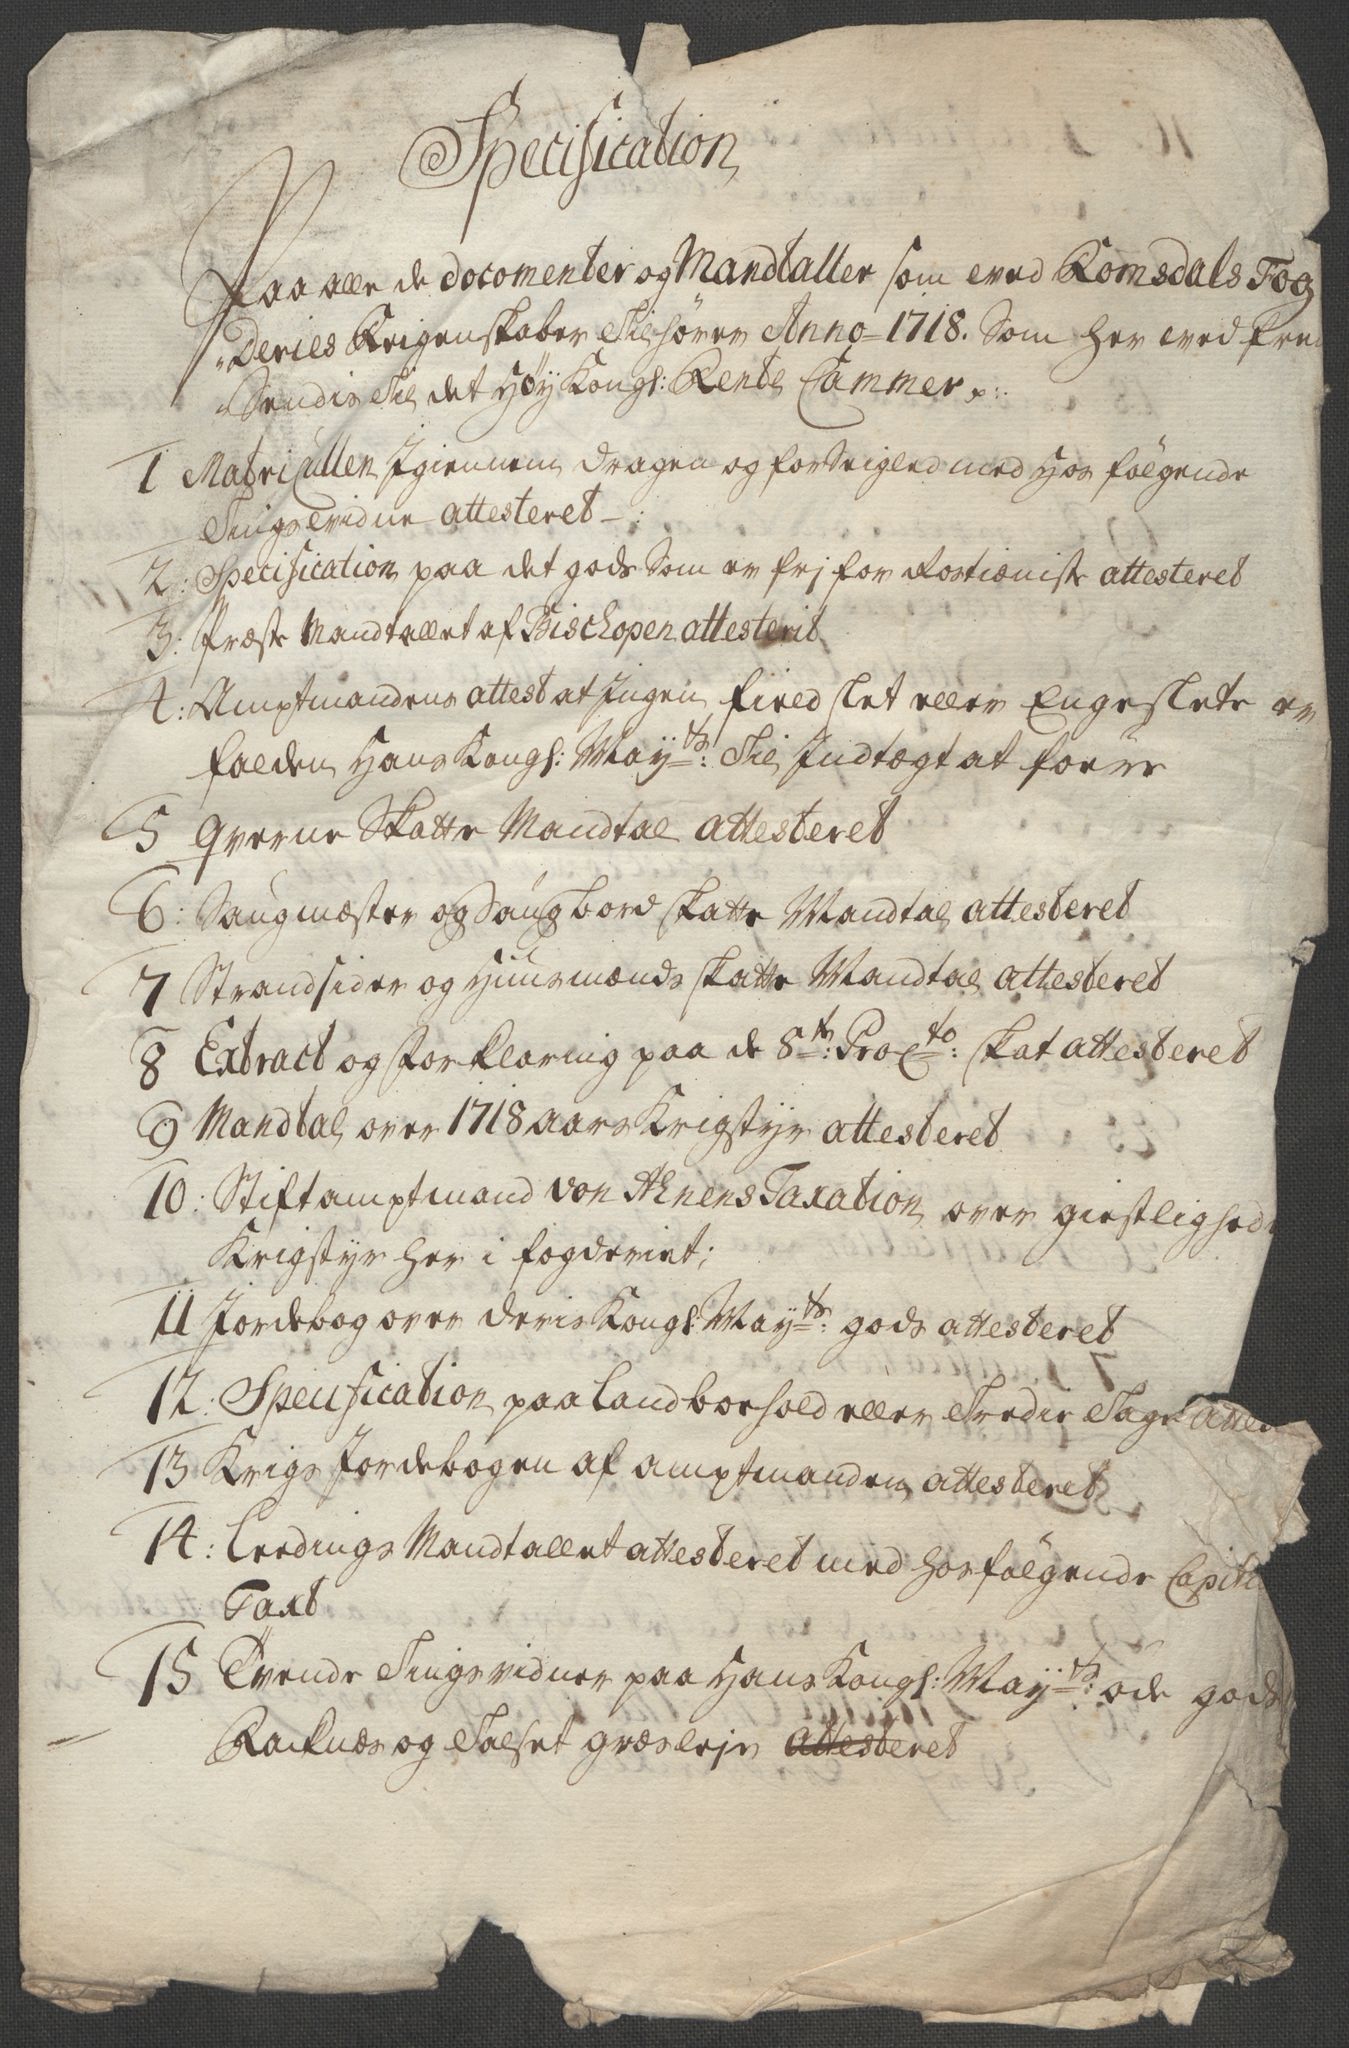 Specification
Paa alle de docomenter og Mandtaller som ved Romsdals Fog
Deries Regenskaber Tilhører Anno = 1718. Som her ved frem
Sendis Til det Høy Kongl: Rente Cammer p:
1 Matricullen Igiennem dragen og forseigled med hos følgende
Tings vidne attesteret -:
2: Specification paa det gods Som er frj for Rostieniste attesteret
3: Præste Mandtallet af Bischopen attesterit
4: Amptmandens attest at Ingen field slet eller Engeslette er
falden Hans Kongl: Mayts: Til Indtægt at føre
5 Qverne Skatte Mandtal attesteret
6: Saugmæster og Saugbord skatte Mandtal attesteret
7 Strandsider og Huusmænds skatte Mandtal attesteret
8 Extract og forklaring paa de 8te: ProCto: skat attesteret
9 Mandtal over 1718 aars Krigstyr attesteret
10: Stiftamptmand von Ahnens Taxation over giestlighed
Krigstyr her i fogderiet;
11 Jordebog over deris Kongl: Mayts: gods attesteret
12: Specification paa Landboehold eller Tredie Tage atte
13 Krigs Jordebogen af amptmanden attesteret
14: Leedings Mandtallet attesteret med hosfølgende Capitu
Taxt
15 Tvende Tingsvidner paa Hans Kongl: Mayts: øde gods
Racknes og Talset græsleje attesteret